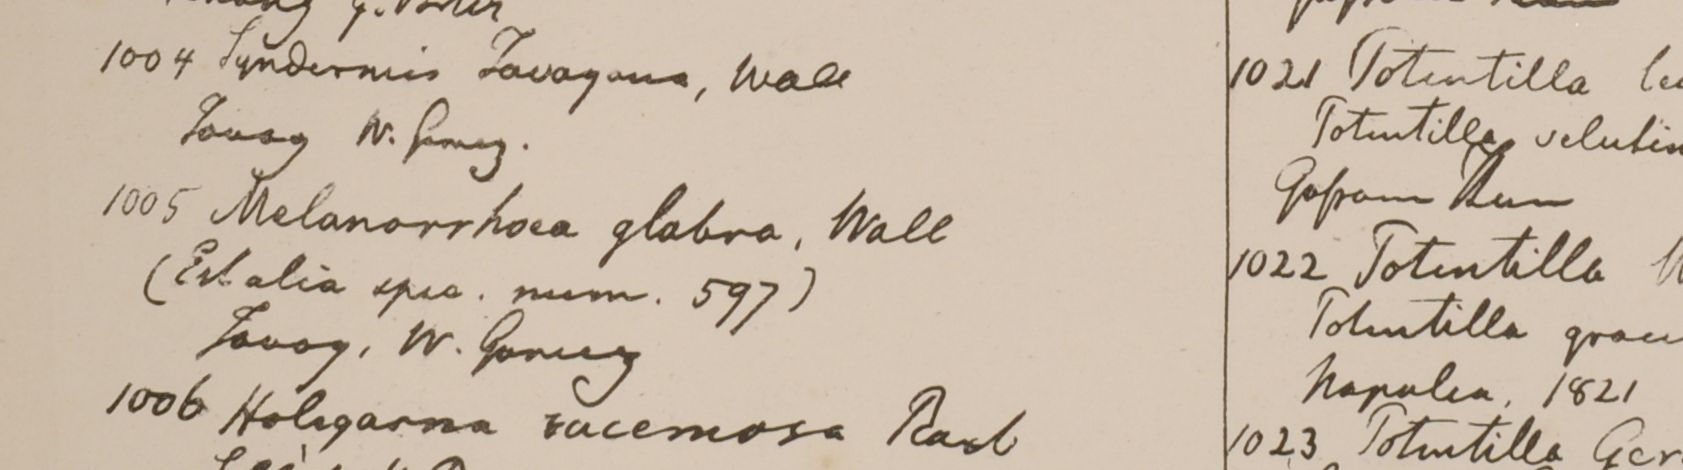 1004 Syndesmis Tavoyana, Wall
Tavoy W. Gomez.
1005 Melanorrhoea glabra, Wall
(Est alia spec. num. 597)
Tavoy, W. Gomez
1006 Holigarna racemosa Roxb
1021 Potentilla
Potentilla velutin
1022 Potentilla
Potentilla
Napalea, 1821
1023 Potentilla Ger